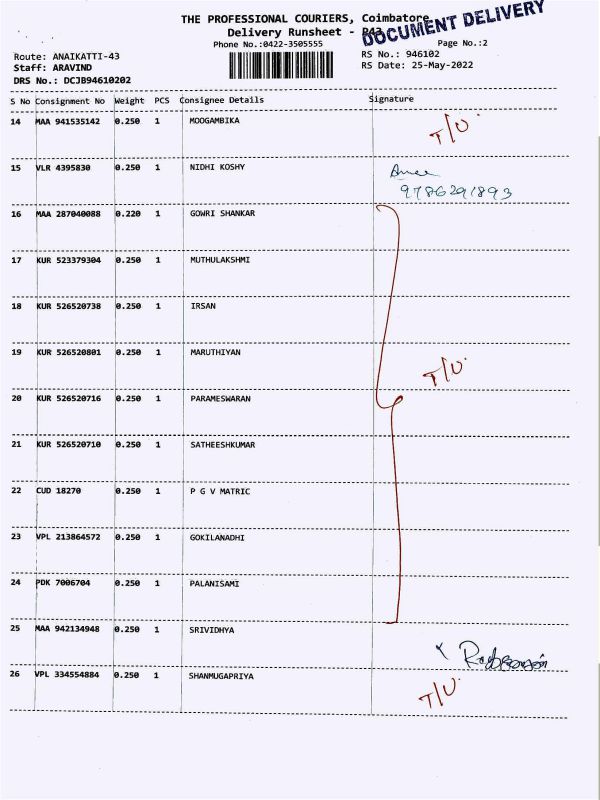 THE PROFESSIONAL COURIERS, Coimbatore
DOCUMENT DELIVERY
Delivery Runsheet - P43
Phone No.:0422-3505555
Page No.:2
Route: ANAIKATTI-43
RS No.: 946102
Staff: ARAVIND
RS Date: 25-May-2022
DRS No.: DCJB94610202
S No Consignment No Weight PCS Consignee Details Signature
14 MAA 941535142 0.250 1 MOOGAMBIKA T/U
15 VLR 4395830 0.250 1 NIDHI KOSHY
9786291893
16 MAA 287040088 0.220 1 GOWRI SHANKAR
17 KUR 523379304 0.250 1 MUTHULAKSHMI
18 KUR 526520738 0.250 1 IRSAN
19 KUR 526520801 0.250 1 MARUTHIYAN T/U
20 KUR 526520716 0.250 1 PARAMESWARAN
21 KUR 526520710 0.250 1 SATHEESHKUMAR
22 CUD 18270 0.250 1 P G V MATRIC
23 VPL 213864572 0.250 1 GOKILANADHI
24 PDK 7006704 0.250 1 PALANISAMI
25 MAA 942134948 0.250 1 SRIVIDHYA
26 VPL 334554884 0.250 1 SHANMUGAPRIYA T/U